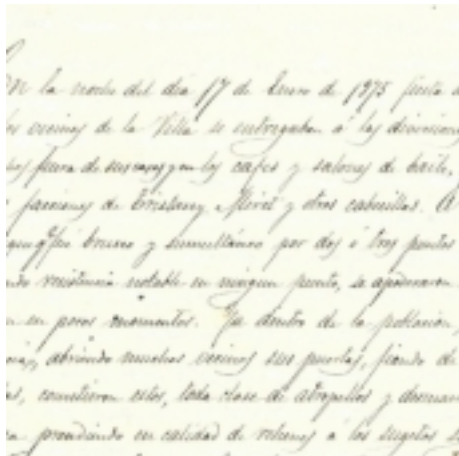 En la noche del dia 17 de Enero de 1875 fiesta d
los vecinos de la Villa se entregaban á las diversione
fuera de sus casas y en los cafes y salones de baile,
facciones de Tristany, Miret y otros cabecillas. A
brusco y simultáneo por dos ó tres puntos
resistencia notable en ningun punto, se apoderaron
en pocos momentos. Ya dentro de la poblacion
abriendo muchos vecinos sus puertas, fiando de
cometieron estos, toda clase de atropellos y
prendiendo en calidad de rehenes á los sugetos